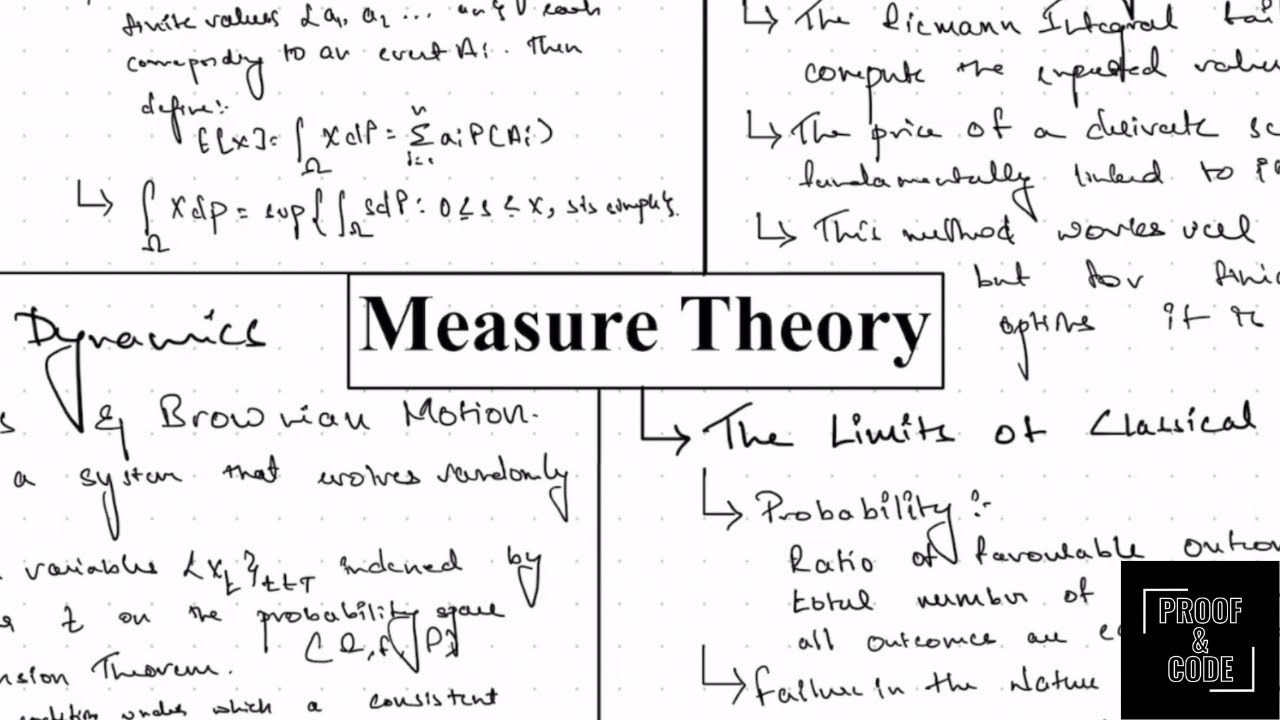 finite values {a1, a2 ... an} each
corresponding to an event Ai. Then
define:-
E[X] = ∫Ω X dP = Σ i=1 n ai P(Ai)
↳ ∫Ω X dP = sup{∫Ω s dP : 0 ≤ s ≤ X, s is simple}.
↳ The Riemann Integral fail
compute the expected value
↳ The price of a derivate sc
fundamentally linked to
↳ This method works well
but for finic
options if
Measure Theory
Dynamics
s & Brownian Motion.
a system that evolves randomly
variables {Xt}t∈T indexed by
t on the probability space
(Ω, F, P)
nsion Theorem.
under which a consistent
↳ The Limits of Classical
↳ Probability :-
Ratio of favourable outcom
total number of
all outcomes are e
↳ Failure in the Nature
PROOF
&
CODE